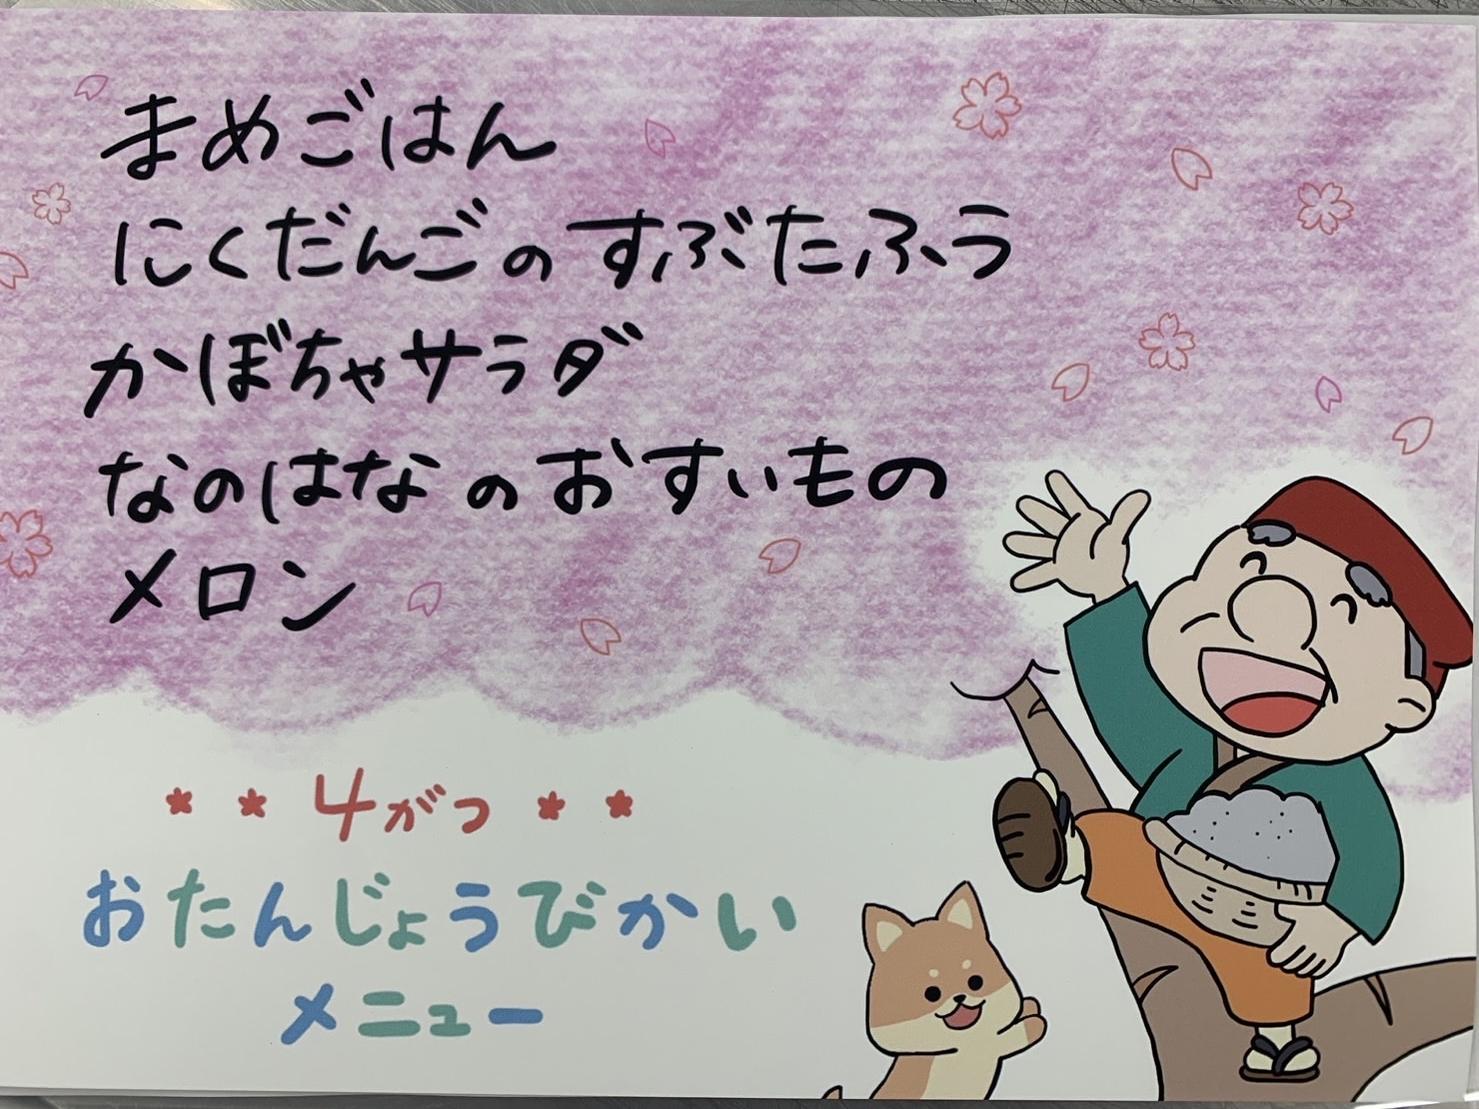 まめごはん
にくだんごのすぶたふう
かぼちゃサラダ
なのはなのおすいもの
メロン
4がつ
おたんじょうびかい
メニュー